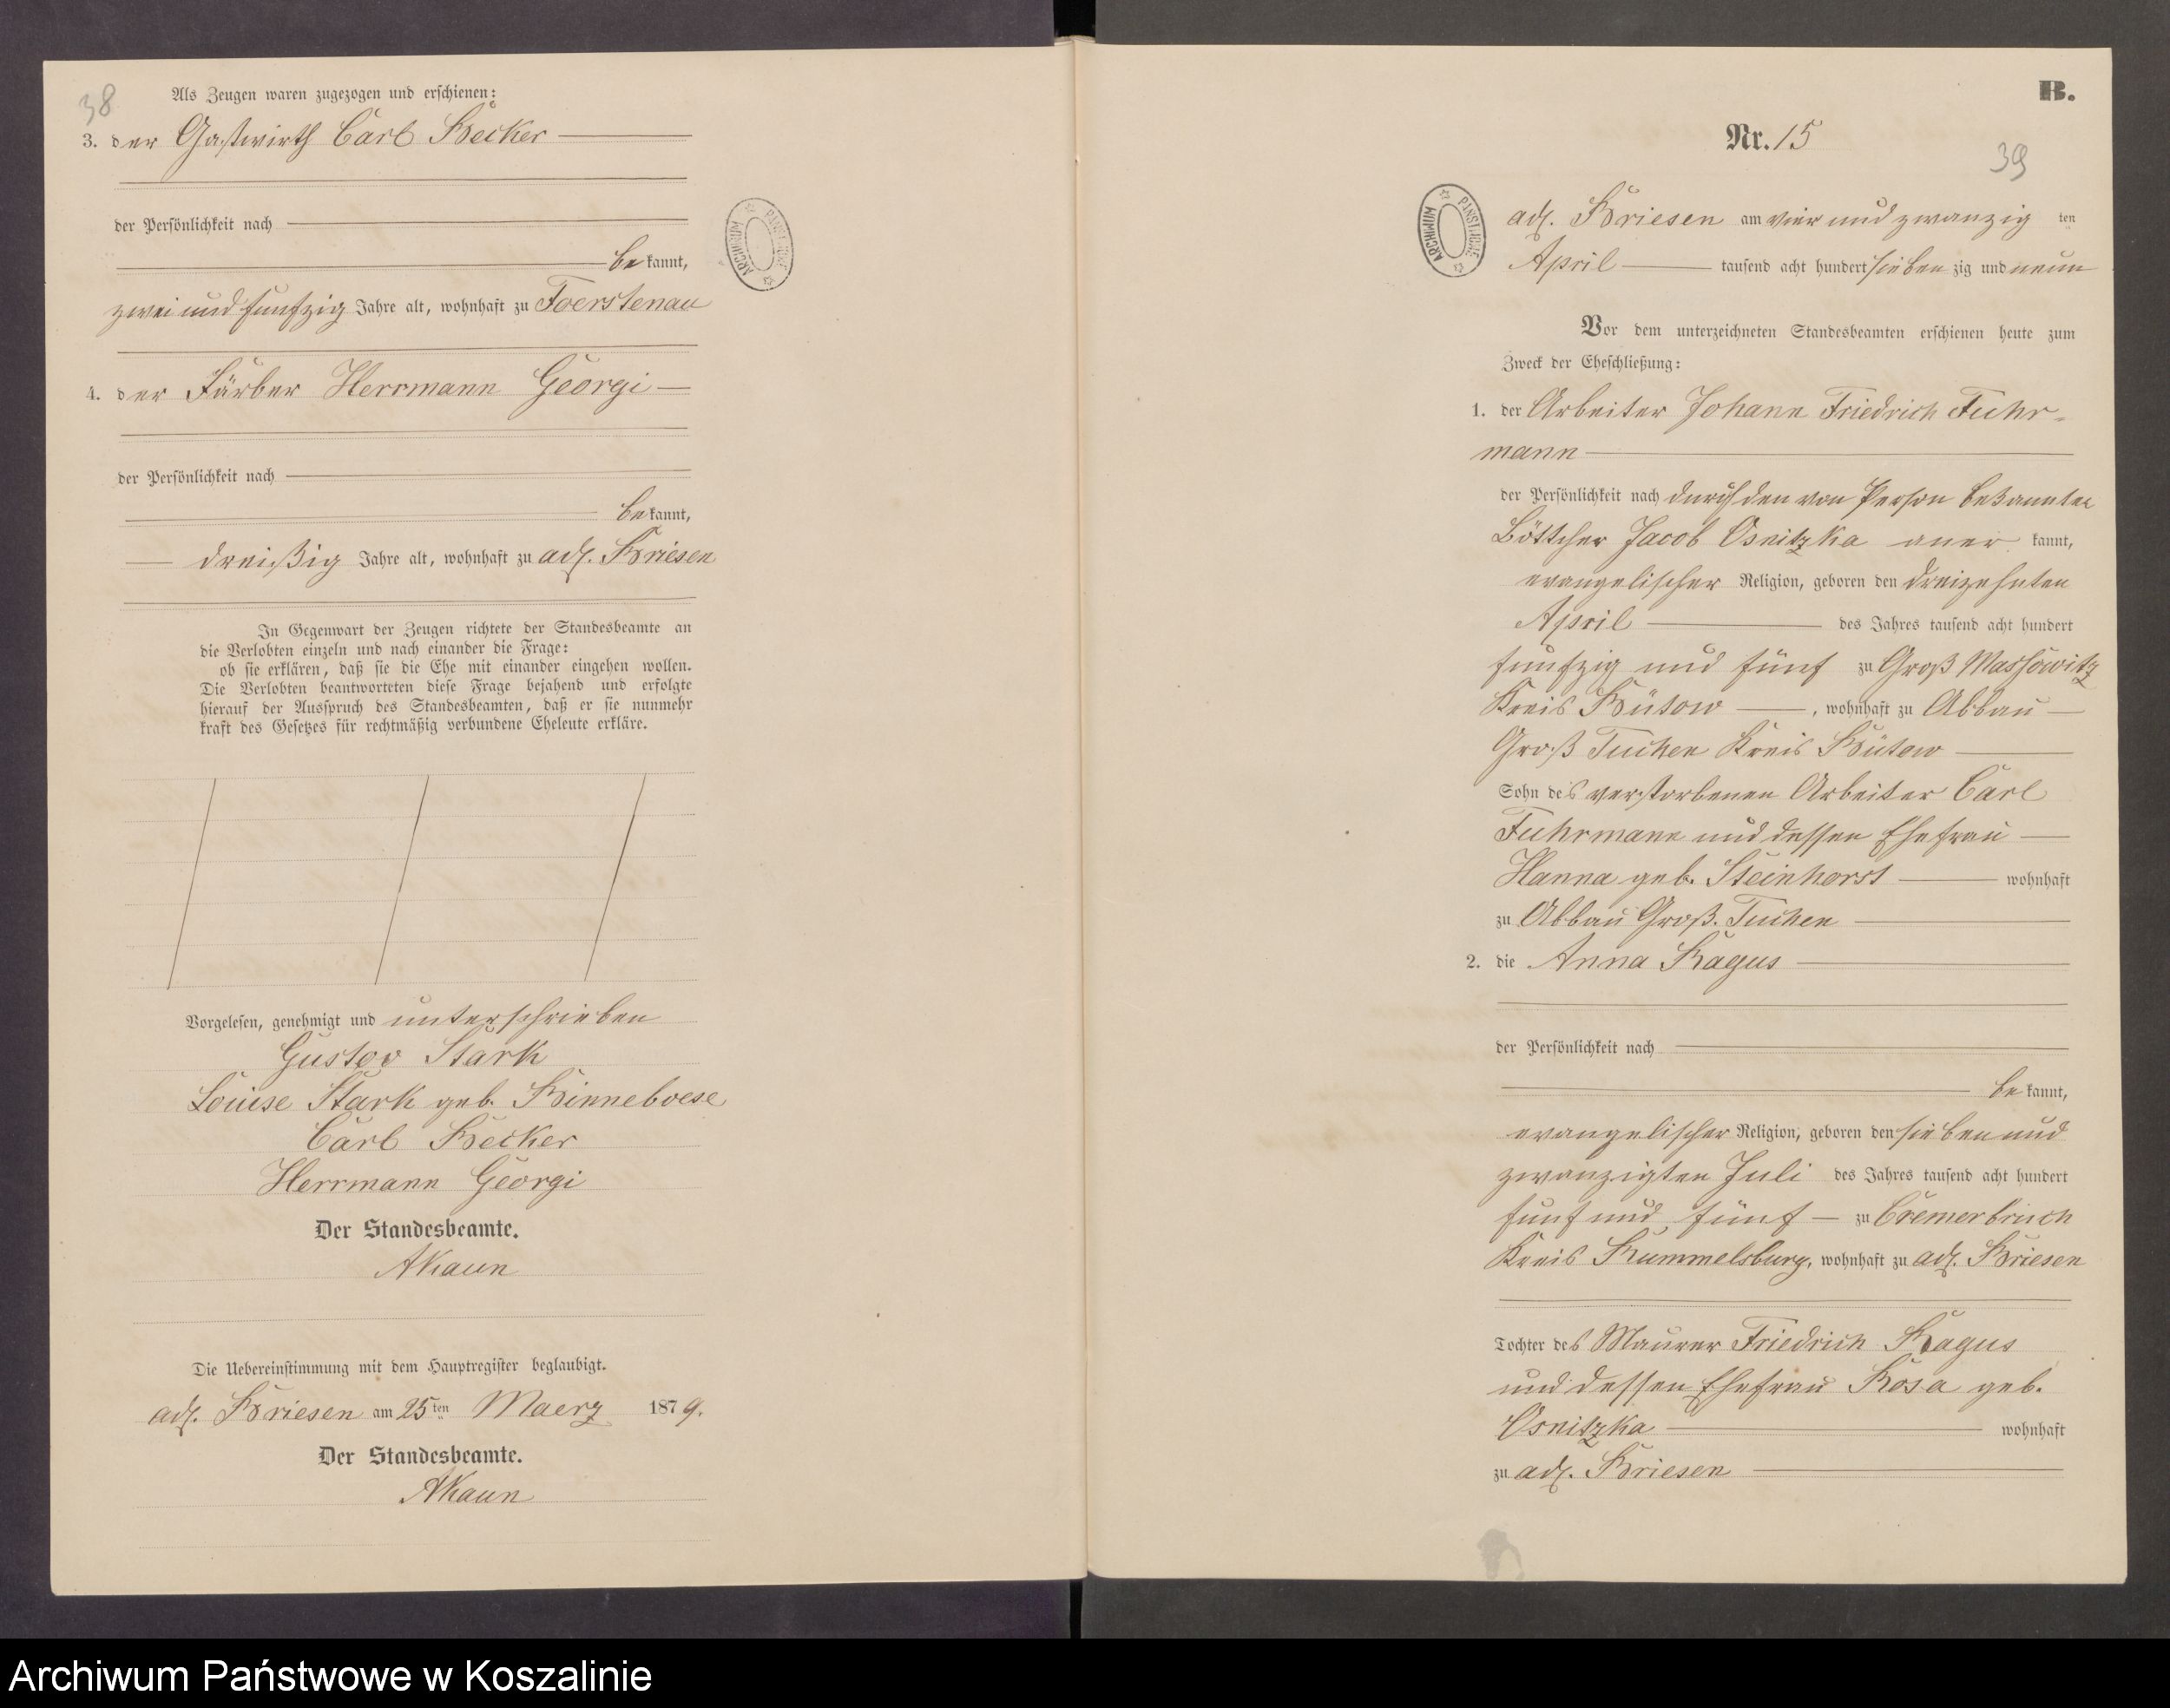 38
Als Zeugen waren zugezogen und erschienen:
3. der Gastwirth Carl Becker
der Persönlichkeit nach
bekannt,
zwei und funfzig Jahre alt, wohnhaft zu Foerstenau
4. der Färber Herrmann Georgi
der Persönlichkeit nach
bekannt,
dreißig Jahre alt, wohnhaft zu adl. Briesen
In Gegenwart der Zeugen richtete der Standesbeamte an
die Verlobten einzeln und nach einander die Frage:
ob sie erklären, daß sie die Ehe mit einander eingehen wollen.
Die Verlobten beantworteten diese Frage bejahend und erfolgte
hierauf der Ausspruch des Standesbeamten, daß er sie nunmehr
kraft des Gesetzes für rechtmäßig verbundene Eheleute erkläre.
Vorgelesen, genehmigt und unterschrieben
Gustav Stark
Louise Stark geb. Binneboese
Carl Becker
Herrmann Georgi
Der Standesbeamte.
AKaun
Die Uebereinstimmung mit dem Hauptregister beglaubigt.
adl. Briesen am 25ten Maerz 1879.
Der Standesbeamte.
AKaun
ARCHIWUM PAŃSTWOWE
B.
Nr. 15
39
ARCHIWUM PAŃSTWOWE
adl. Briesen am vier und zwanzig ten
April tausend acht hundert siebenzig und neun
Vor dem unterzeichneten Standesbeamten erschienen heute zum
Zweck der Eheschließung:
1. der Arbeiter Johann Friedrich Fuhr-
mann
der Persönlichkeit nach durch den von Person bekannten
Böttcher Jacob Osnitzka anerkannt,
evangelischer Religion, geboren den dreizehnten
April des Jahres tausend acht hundert
funfzig und fünf zu Groß Massowitz
Kreis Bütow, wohnhaft zu Abbau
Groß Tuchen Kreis Bütow
Sohn des verstorbenen Arbeiter Carl
Fuhrmann und dessen Ehefrau
Hanna geb. Steinhorst wohnhaft
zu Abbau Groß. Tuchen
2. die Anna Ragus
der Persönlichkeit nach
bekannt,
evangelischer Religion, geboren den sieben und
zwanzigten Juli des Jahres tausend acht hundert
funf und fünf zu Cremerbruch
Kreis Rummelsburg, wohnhaft zu adl. Briesen
Tochter des Maurer Friedrich Ragus
und dessen Ehefrau Rosa geb.
Osnitzka wohnhaft
zu adl. Briesen
Archiwum Państwowe w Koszalinie